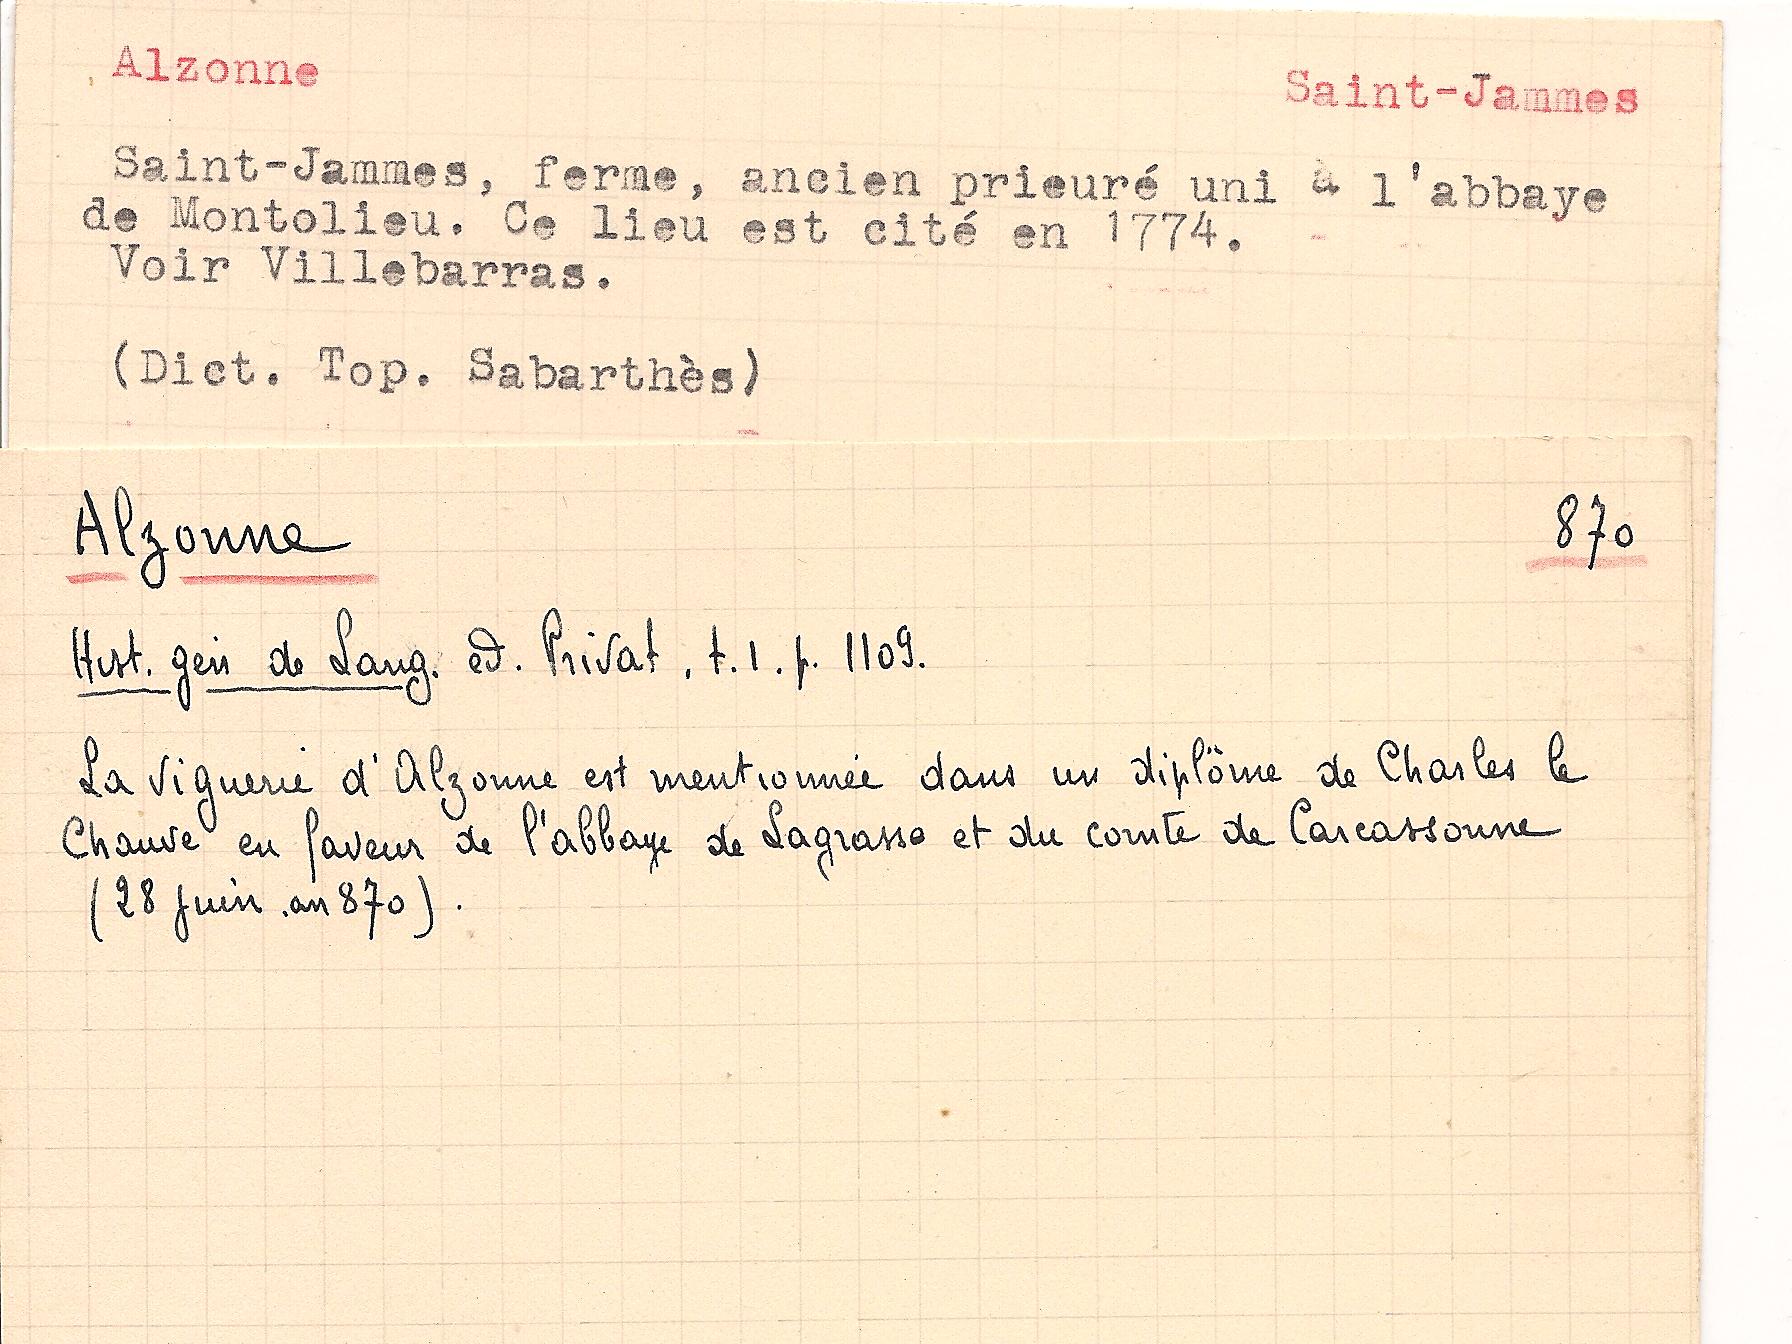 Alzonne Saint-Jammes
Saint-Jammes, ferme, ancien prieuré uni à l'abbaye
de Montolieu. Ce lieu est cité en 1774.
Voir Villebarras.
(Dict. Top. Sabarthès)
Alzonne 870
Hist. gén de Lang. ed. Privat, t. 1. p. 1109.
La viguerie d'Alzonne est mentionnée dans un diplôme de Charles le
Chauve en faveur de l'abbaye de Lagrasse et du comte de Carcassonne
(28 juin. an 870).